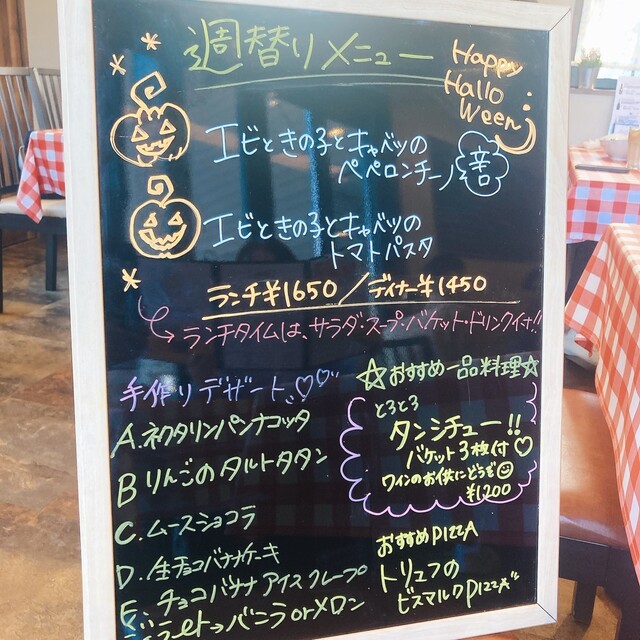 週替りメニュー
Happy
Hallo
Ween
エビときの子とキャベツの
ペペロンチーノ 辛口
エビときの子とキャベツの
トマトパスタ
ランチ¥1650/ディナー¥1450
→ランチタイムは、サラダ・スープ・バケット・ドリンク付!!
手作りデザート、♡♡
A.ネクタリンパンナコッタ
B りんごのタルトタタン
C.ムースショコラ
D.生チョコバナナケーキ
E.チョコバナナアイスクレープ
→バニラorメロン
☆おすすめ一品料理☆
とろとろ
タンシチュー!!
バケット3枚付♡
ワインのお供にどうぞ☺
¥1,200
おすすめPIZZA
トリュフの
ビスマルクPIZZA